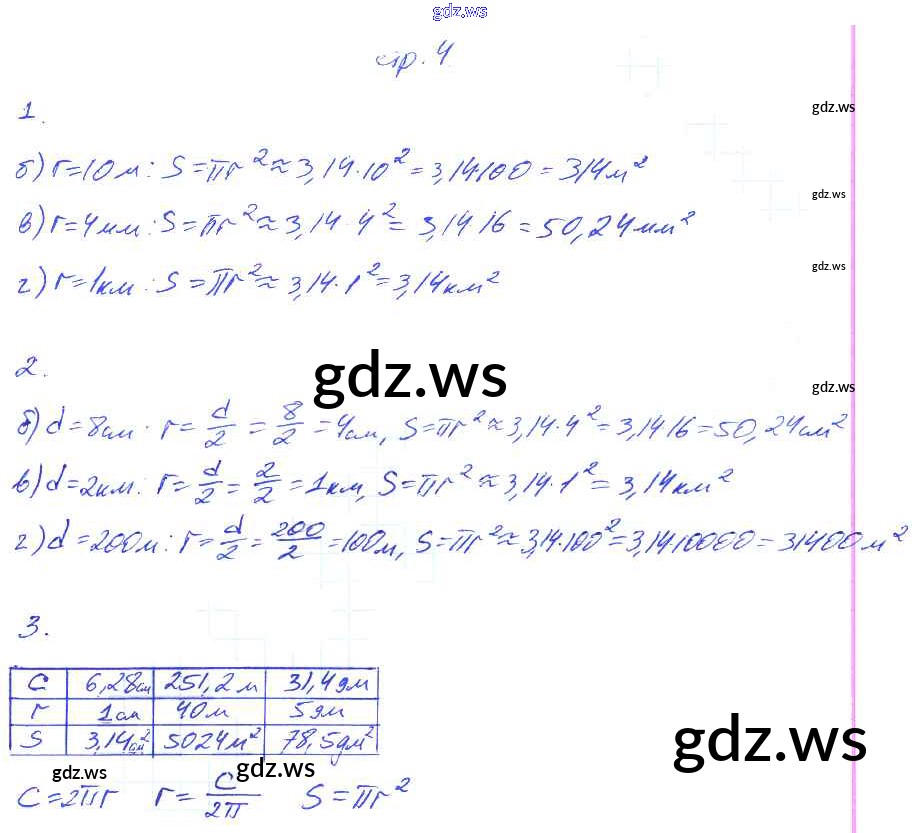 gdz.ws
стр. 4
gdz.ws
1.
б) r=10м: S=πr²≈3,14·10²=3,14·100=314м²
gdz.ws
в) r=4мм: S=πr²≈3,14·4²=3,14·16=50,24мм²
gdz.ws
г) r=1км: S=πr²≈3,14·1²=3,14км²
2.
gdz.ws
gdz.ws
б) d=8см: r=d/2=8/2=4см, S=πr²≈3,14·4²=3,14·16=50,24см²
в) d=2км: r=d/2=2/2=1км, S=πr²≈3,14·1²=3,14км²
г) d=200м: r=d/2=200/2=100м, S=πr²≈3,14·100²=3,14·10000=31400м²
3.
C 6,28см 251,2м 31,4дм
r 1см 40м 5дм
S 3,14см² 5024м² 78,5дм²
gdz.ws
gdz.ws
gdz.ws
C=2πr r=C/2π S=πr²